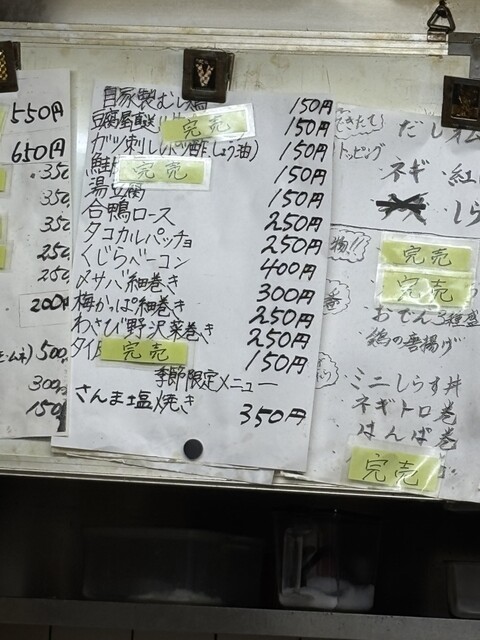 550円
650円
350
350
350
250
250
200円
500
300円
150
自家製むし鶏 150円
豆腐屋直送 完売 150円
ガツ刺し(ポン酢、しょう油) 150円
鮭 完売 150円
湯豆腐 150円
合鴨ロース 250円
タコカルパッチョ 250円
くじらベーコン 400円
〆サバ細巻き 300円
梅かっぱ細巻き 250円
わさび野沢菜巻き 250円
タイ 完売 150円
季節限定メニュー
さんま塩焼き 350円
できたて
だしオム
トッピング
ネギ 紅
しら
物!!
完売
完売
おでん3種盛
鶏の唐揚げ
ミニしらす丼
ネギトロ巻
はんぱ巻
完売